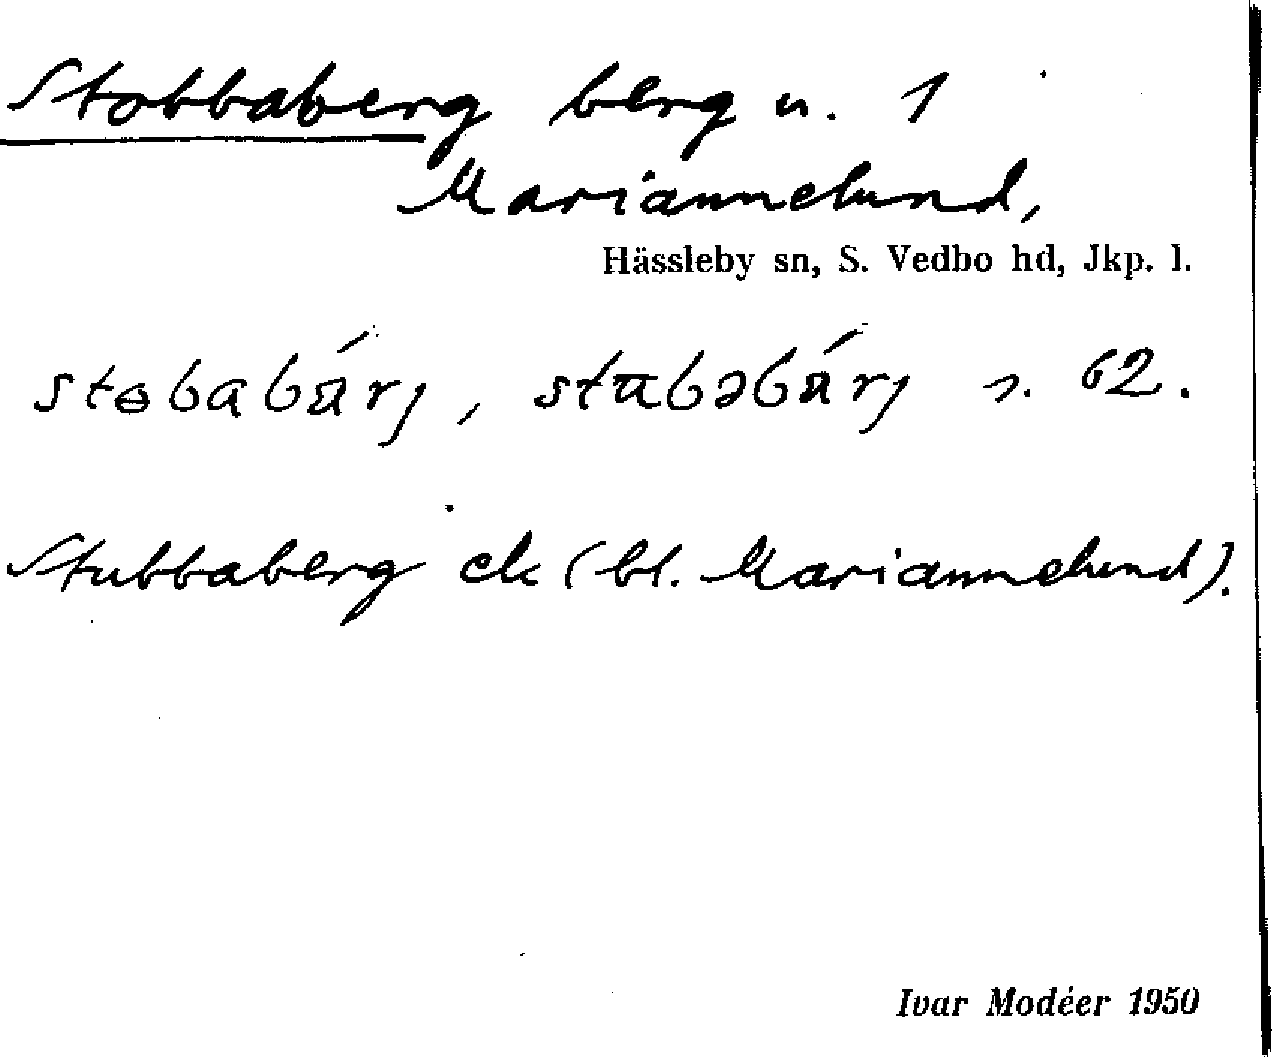 Stobbaberg berg n. 1
Mariannelund,
Hässleby sn, S. Vedbo hd, Jkp. l.
stɵbabárj, stabəbárj s. 62.
Stubbaberg ek (bl. Mariannelund).
Ivar Modéer 1950